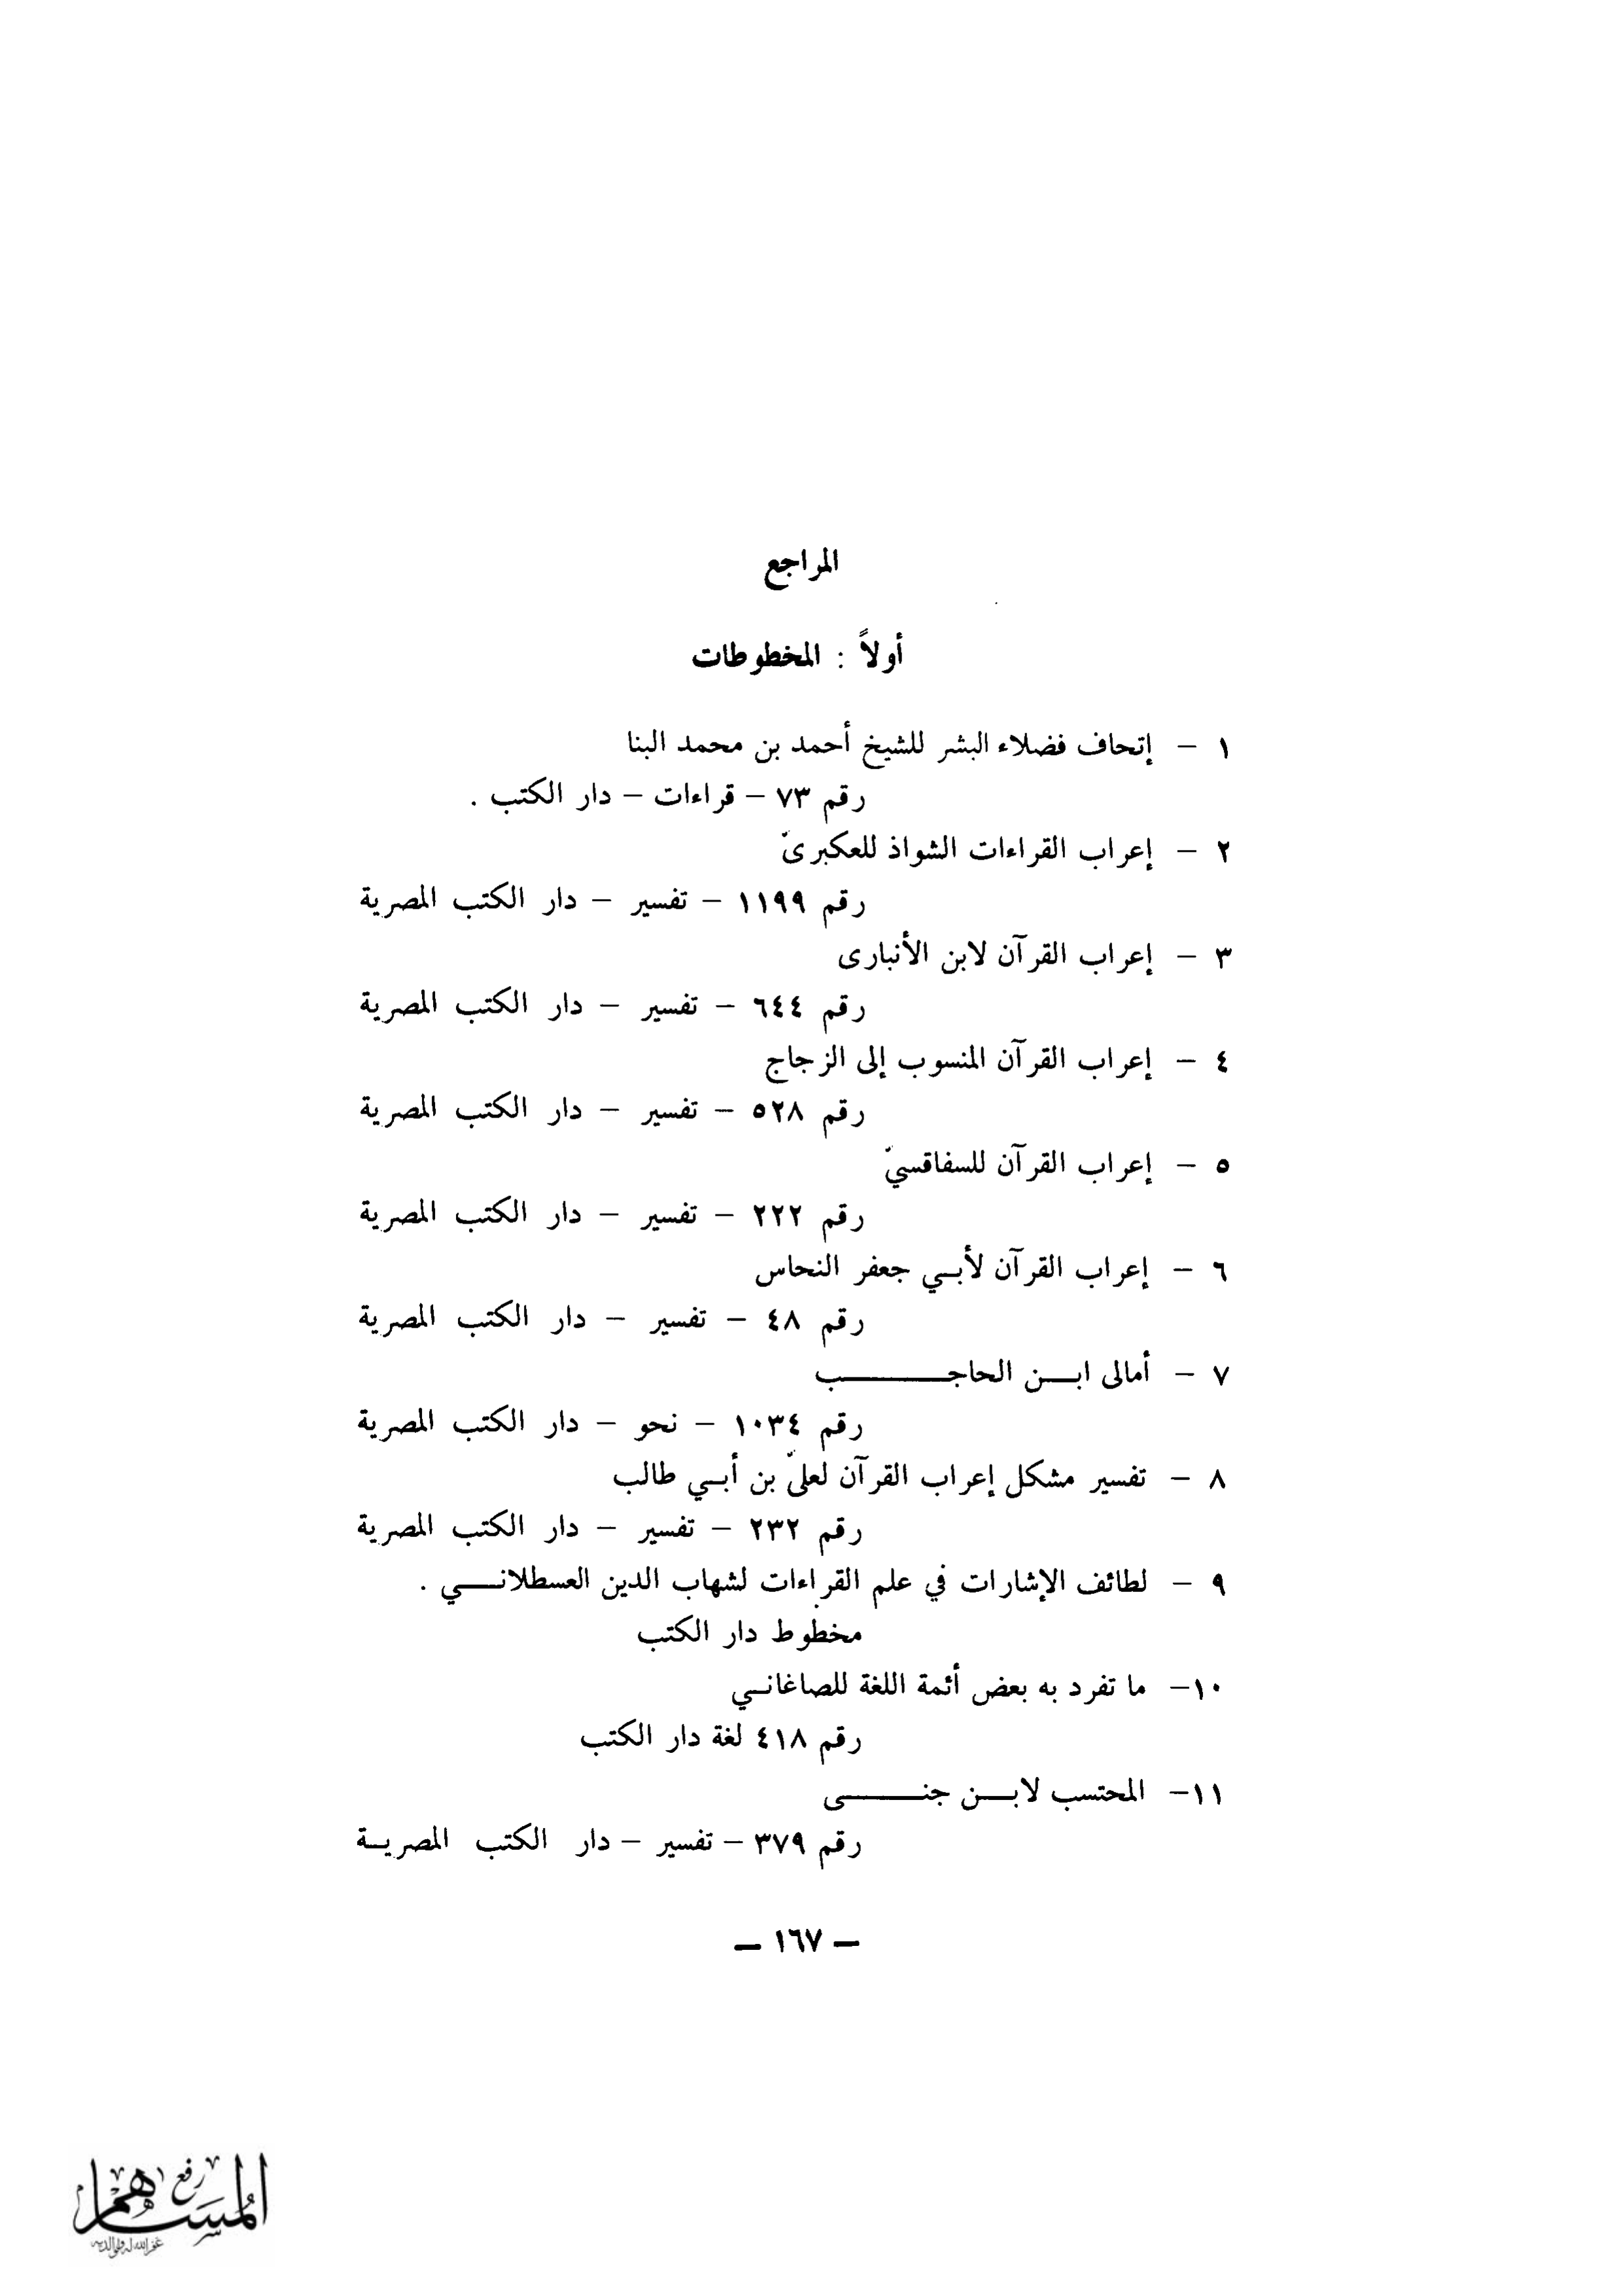 المراجع
أولاً : المخطوطات
١ – إتحاف فضلاء البشر للشيخ أحمد بن محمد البنا
رقم ٧٣ – قراءات – دار الكتب .
٢ – إعراب القراءات الشواذ للعكبرىّ
رقم ١١٩٩ – تفسير – دار الكتب المصرية
٣ – إعراب القرآن لابن الأنبارى
رقم ٦٤٤ – تفسير – دار الكتب المصرية
٤ – إعراب القرآن المنسوب إلى الزجاج
رقم ٥٢٨ – تفسير – دار الكتب المصرية
٥ – إعراب القرآن للسفاقسيّ
رقم ٢٢٢ – تفسير – دار الكتب المصرية
٦ – إعراب القرآن لأبــي جعفر النحاس
رقم ٤٨ – تفسير – دار الكتب المصرية
٧ – أمالى ابــــن الحاجــــــــــــب
رقم ١٠٣٤ – نحو – دار الكتب المصرية
٨ – تفسير مشكل إعراب القرآن لعلىّ بن أبــي طالب
رقم ٢٣٢ – تفسير – دار الكتب المصرية
٩ – لطائف الإشارات في علم القراءات لشهاب الدين العسطلانـــــي .
مخطوط دار الكتب
١٠– ما تفرد به بعض أئمة اللغة للصاغانــي
رقم ٤١٨ لغة دار الكتب
١١– المحتسب لابــــن جنـــــــــى
رقم ٣٧٩ – تفسير – دار الكتب المصريــة
— ١٦٧ —
رفع
المساهم
غفر الله له ولوالديه